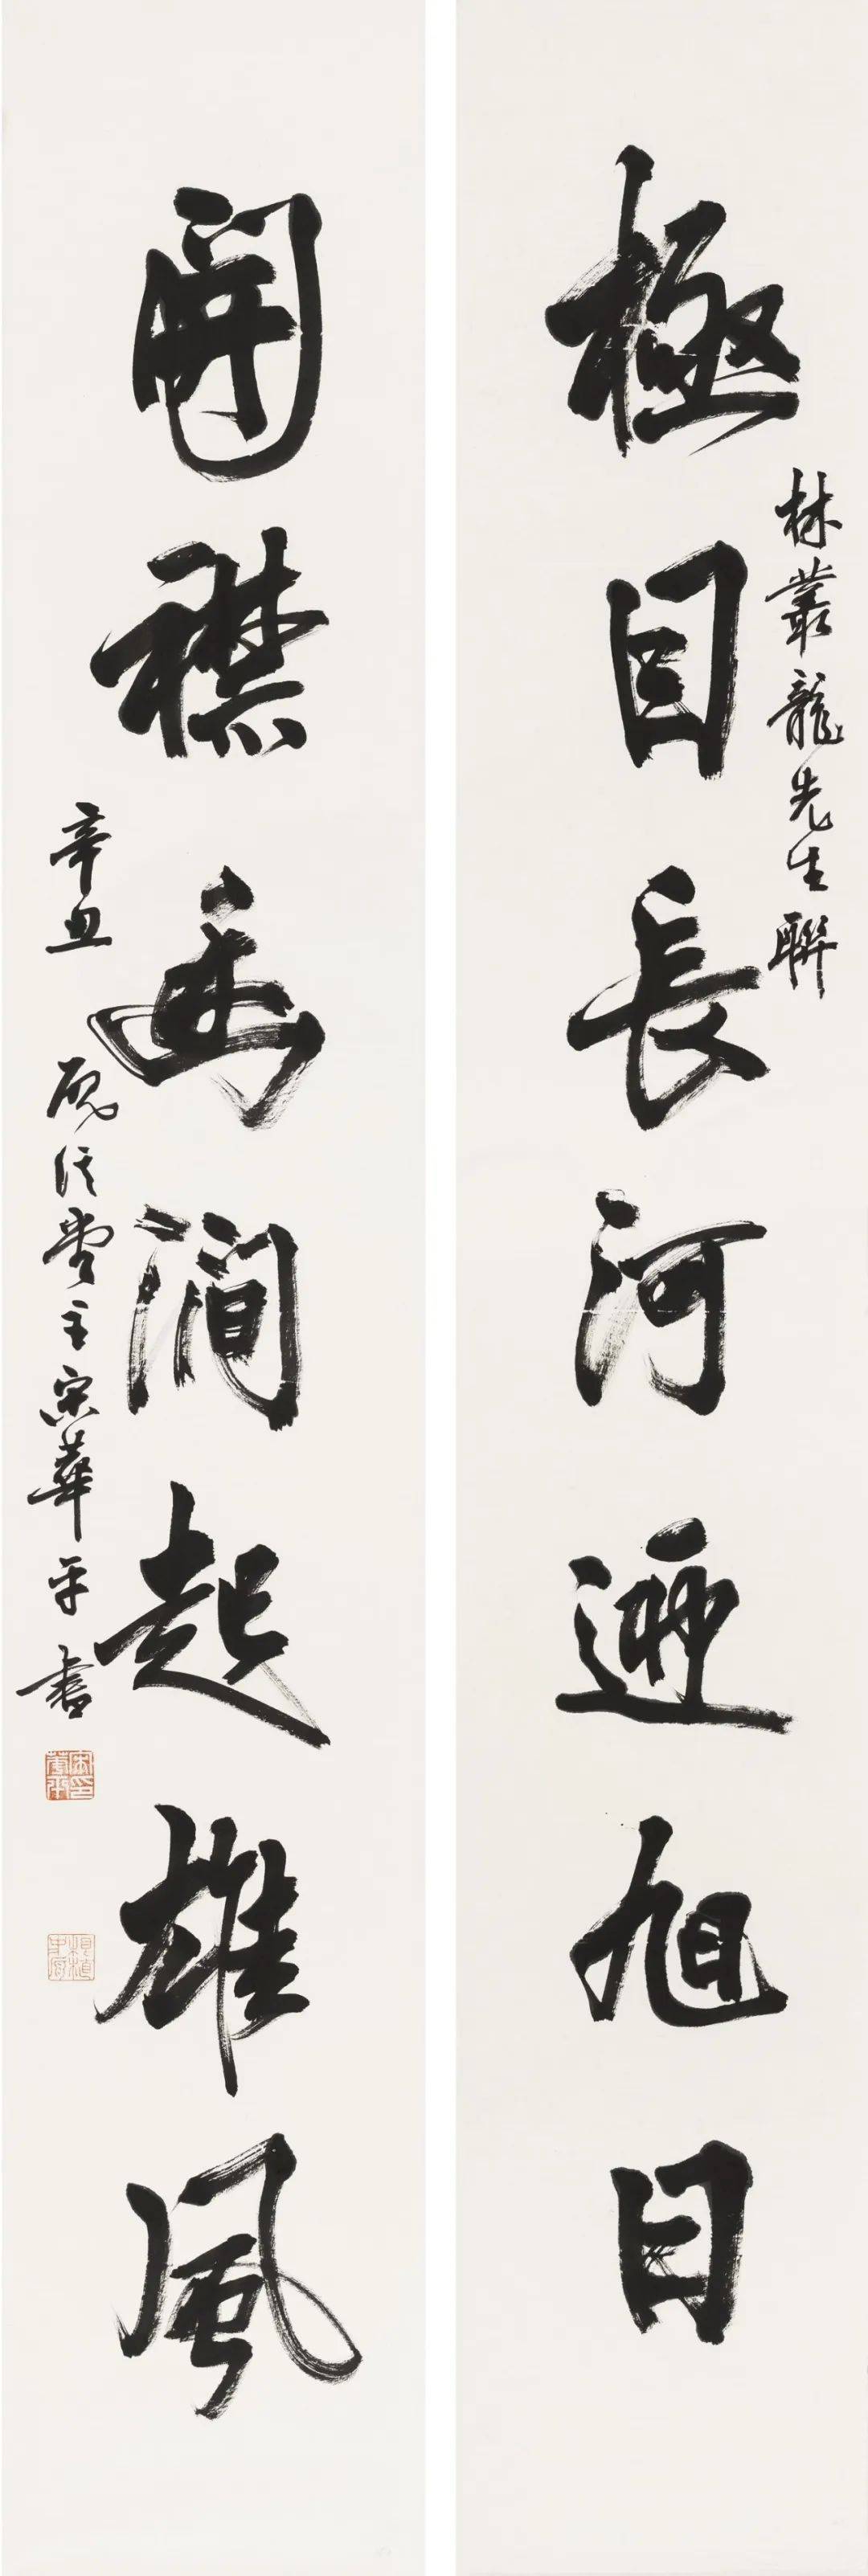 極目長河迎旭日
林叢龍先生聯
開襟幽澗起雄風
辛丑
硯浮堂主宋華平書